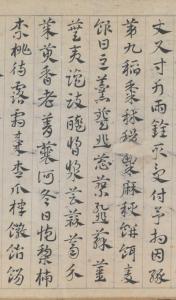 丈尺寸斤兩銓取受付予相因緣
第九稻黍秫稷粟麻秔餅餌麥
飯甘豆羹葵韭葱蓼䪥蘇薑
蕪荑鹽豉醯醬漿芸蒜薺芥
茱萸香老菁蘘荷冬日藏梨柿
柰桃待露霜棗杏瓜棣饊飴餳